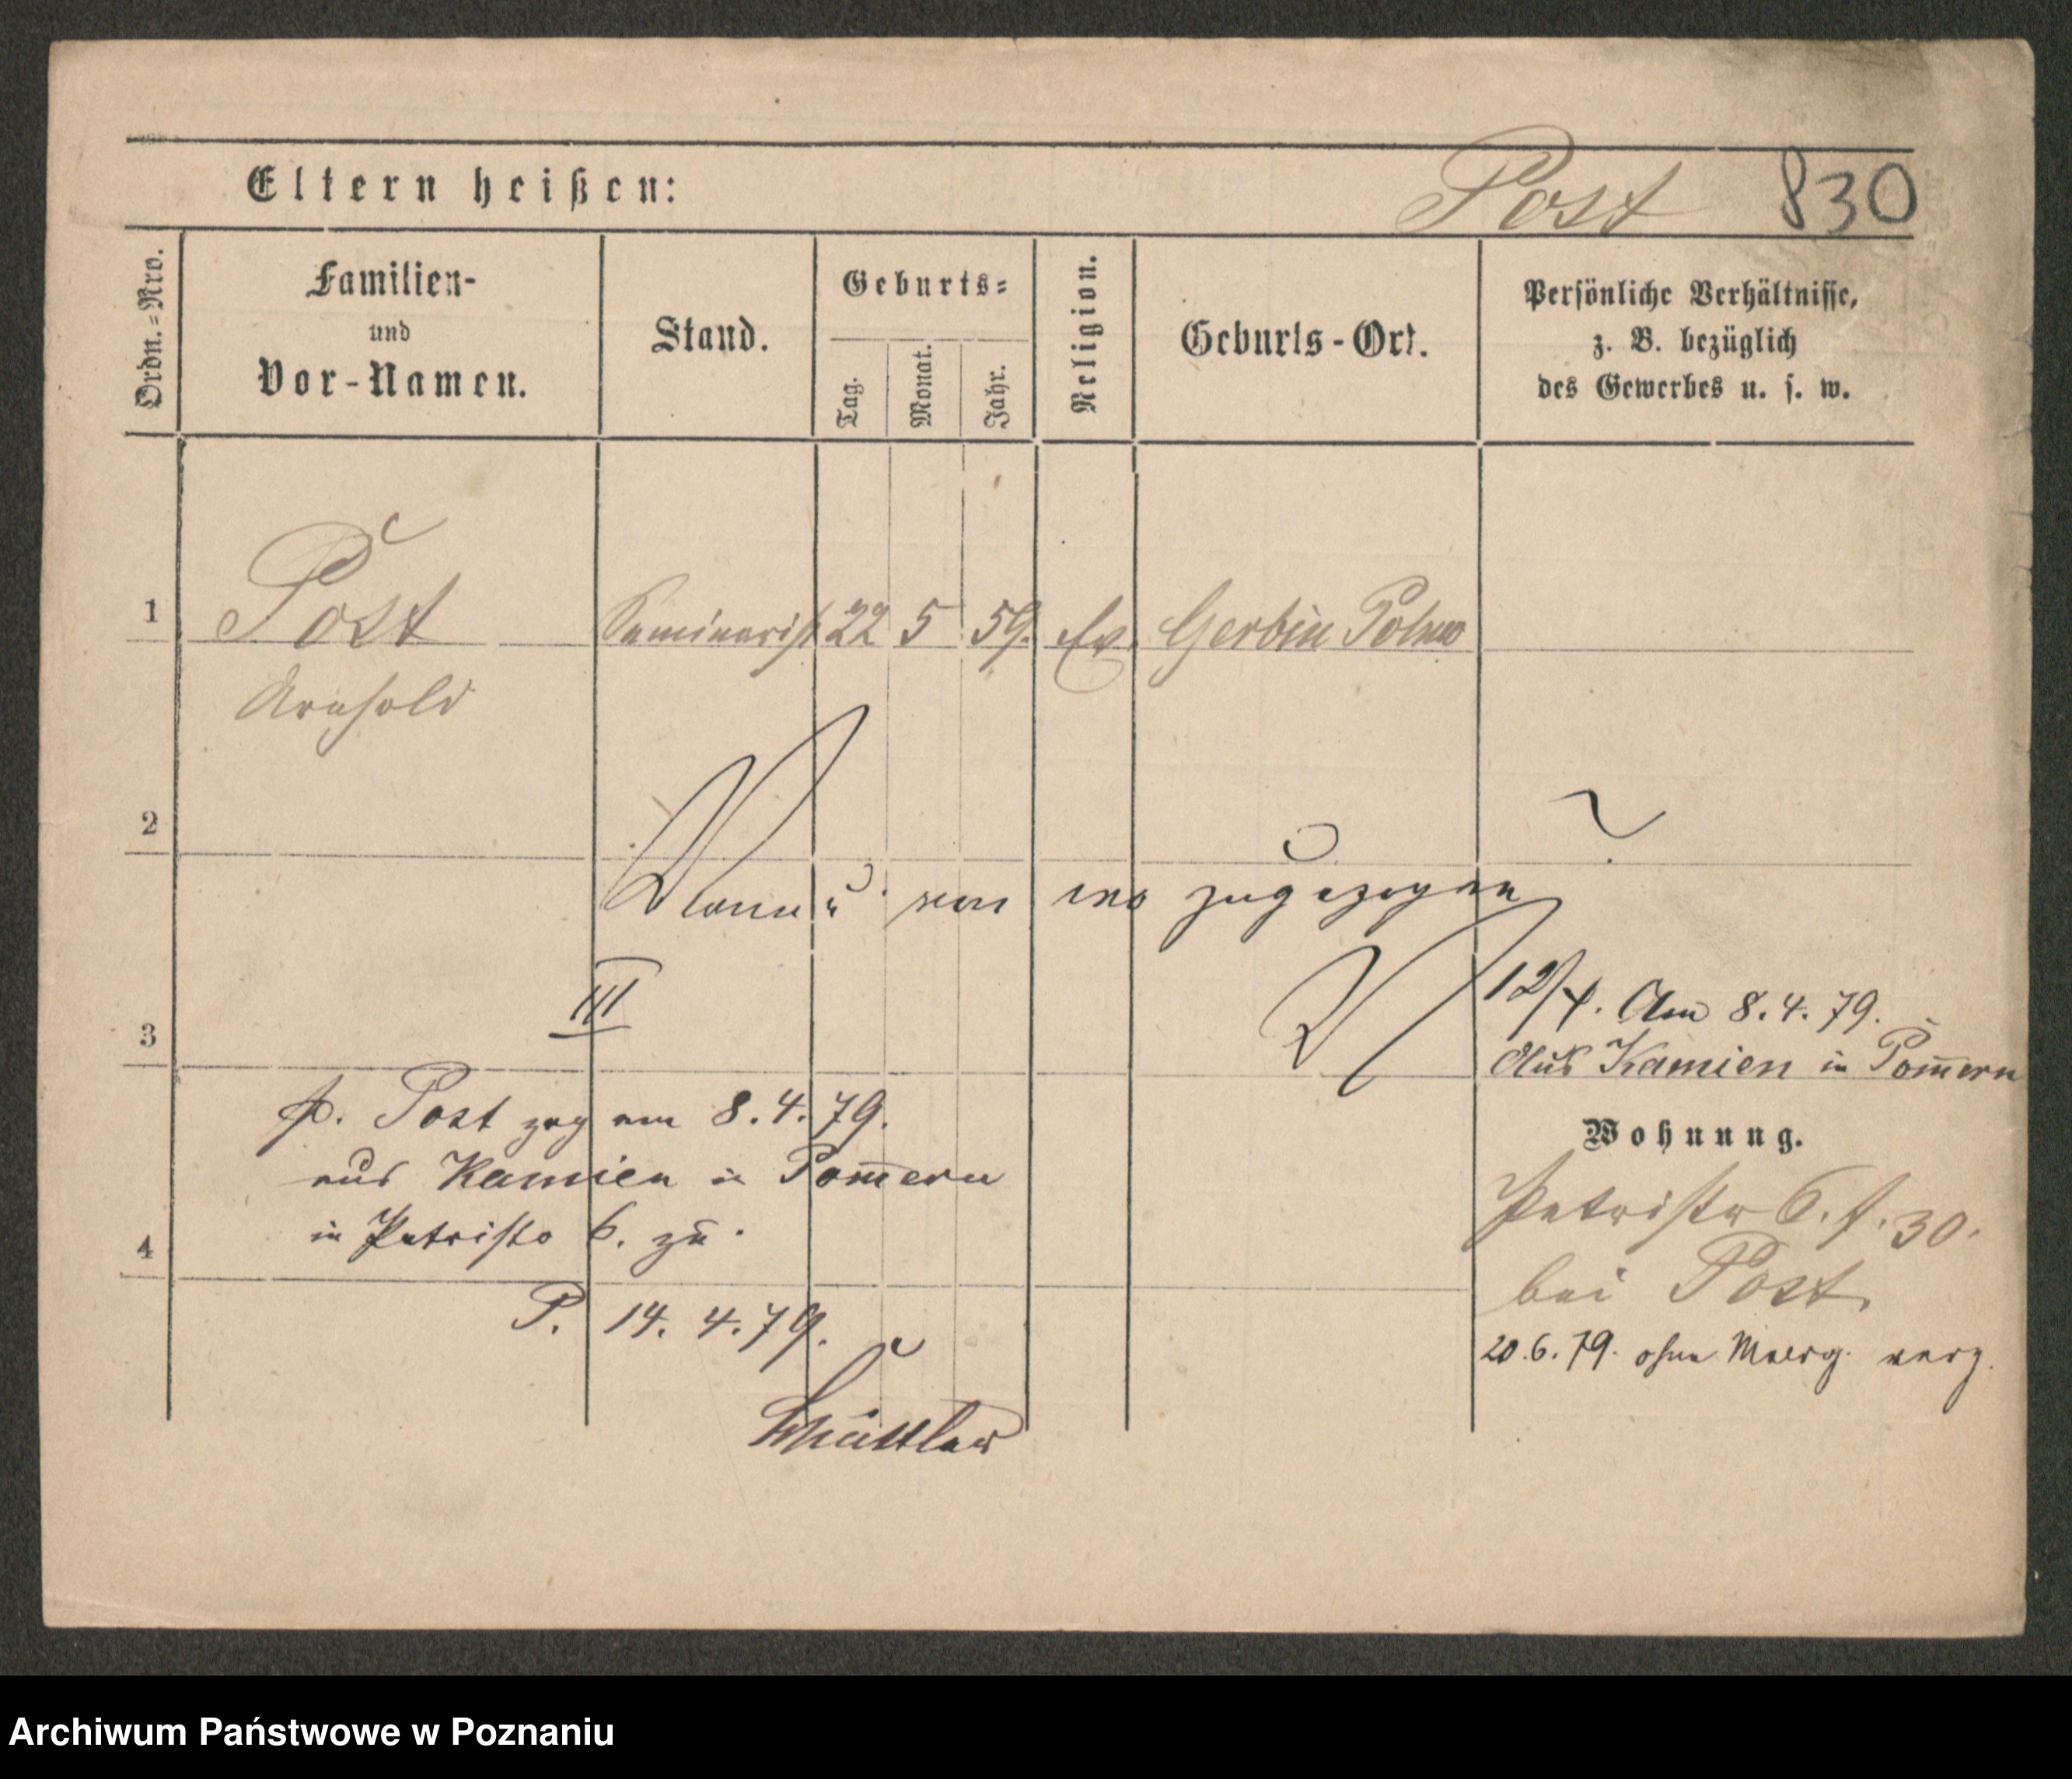 Eltern heißen: Post 830
Ordn.=Nro.
Familien-
und
Vor-Namen.
Stand.
Geburts=
Tag.
Monat.
Jahr.
Religion.
Geburts-Ort.
Persönliche Verhältnisse,
z. B. bezüglich
des Gewerbes u. s. w.
1 Post Seminarist 22 5 59. Ev. Gerbin
Arnhold
2
Wann u von wo zugezogen
III
12/4. Am 8.4.79.
3
Aus Kamien in Pom̄ern
p. Post zog am 8.4.79.
aus Kamien in Pom̄ern
in Petristr 6. zu.
Wohnung.
Petristr 6. 30.
4
bei Post.
P. 14.4.79.
20.6.79. ohne verz.